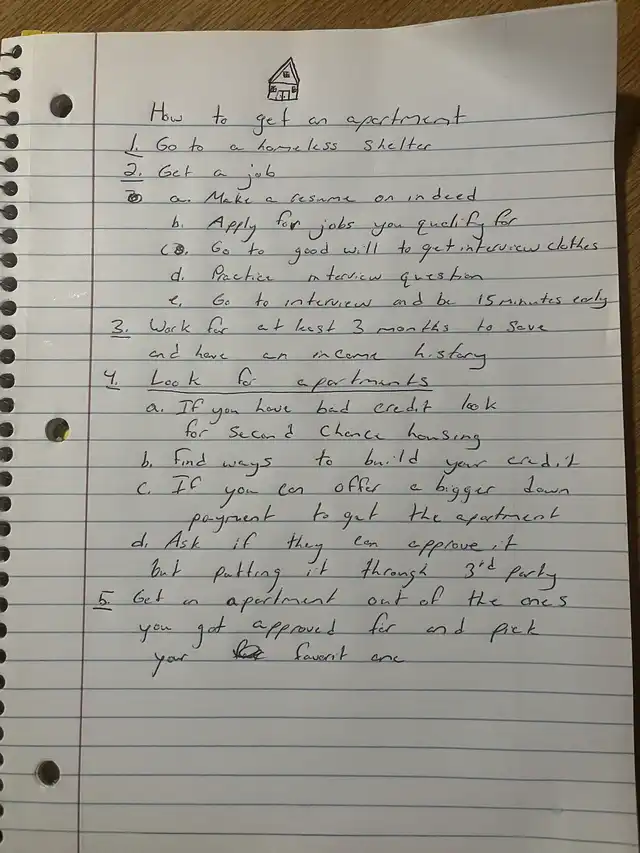 How to get an apartment
1. Go to a homeless shelter
2. Get a job
a. Make a resume on indeed
b. Apply for jobs you qualify for
c. Go to good will to get interview clothes
d. Practice interview question
e. Go to interview and be 15 minutes early
3. Work for at least 3 months to save
and have an income history
4. Look for apartments
a. If you have bad credit look
for second chance housing
b. Find ways to build your credit
c. If you can offer a bigger down
payment to get the apartment
d. Ask if they can approve it
but putting it through 3rd party
5. Get an apartment out of the ones
you got approved for and pick
your favorit one